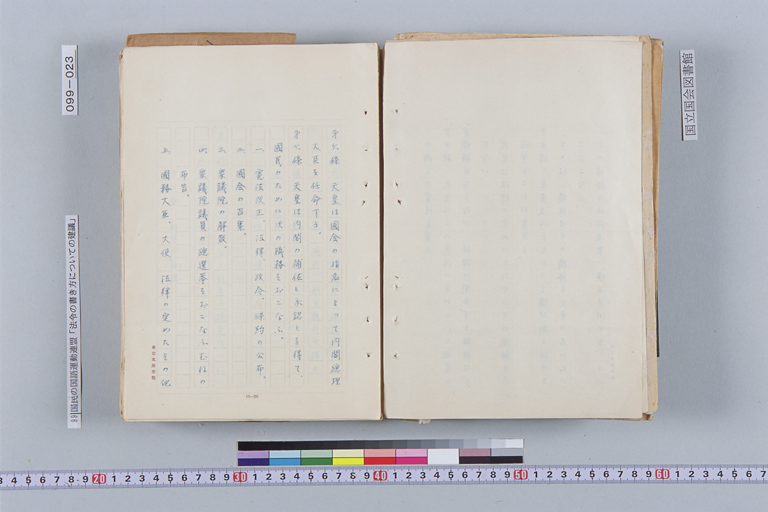 第六條　天皇は國会の指名によって内閣総理
大臣を任命する。
第七條　天皇は内閣の補佐と承認とを得て、
國民のために次の職務をおこなふ。
一、憲法改正、法律、政令、條約の公布。
二、國会の召集。
三、衆議院の解散。
四、衆議院議員の總選挙をおこなふむねの
布告。
五、國務大臣、大使、法律の定めたその他
東京高等学校
099-023
99 国民の国語運動連盟「法令の書き方についての建議」
国立国会図書館
3 4 5 6 7 8 9 20 1 2 3 4 5 6 7 8 9 30 1 2 3 4 5 6 7 8 9 40 1 2 3 4 5 6 7 8 9 50 1 2 3 4 5 6 7 8 9 60 1 2 3 4 5 6 7